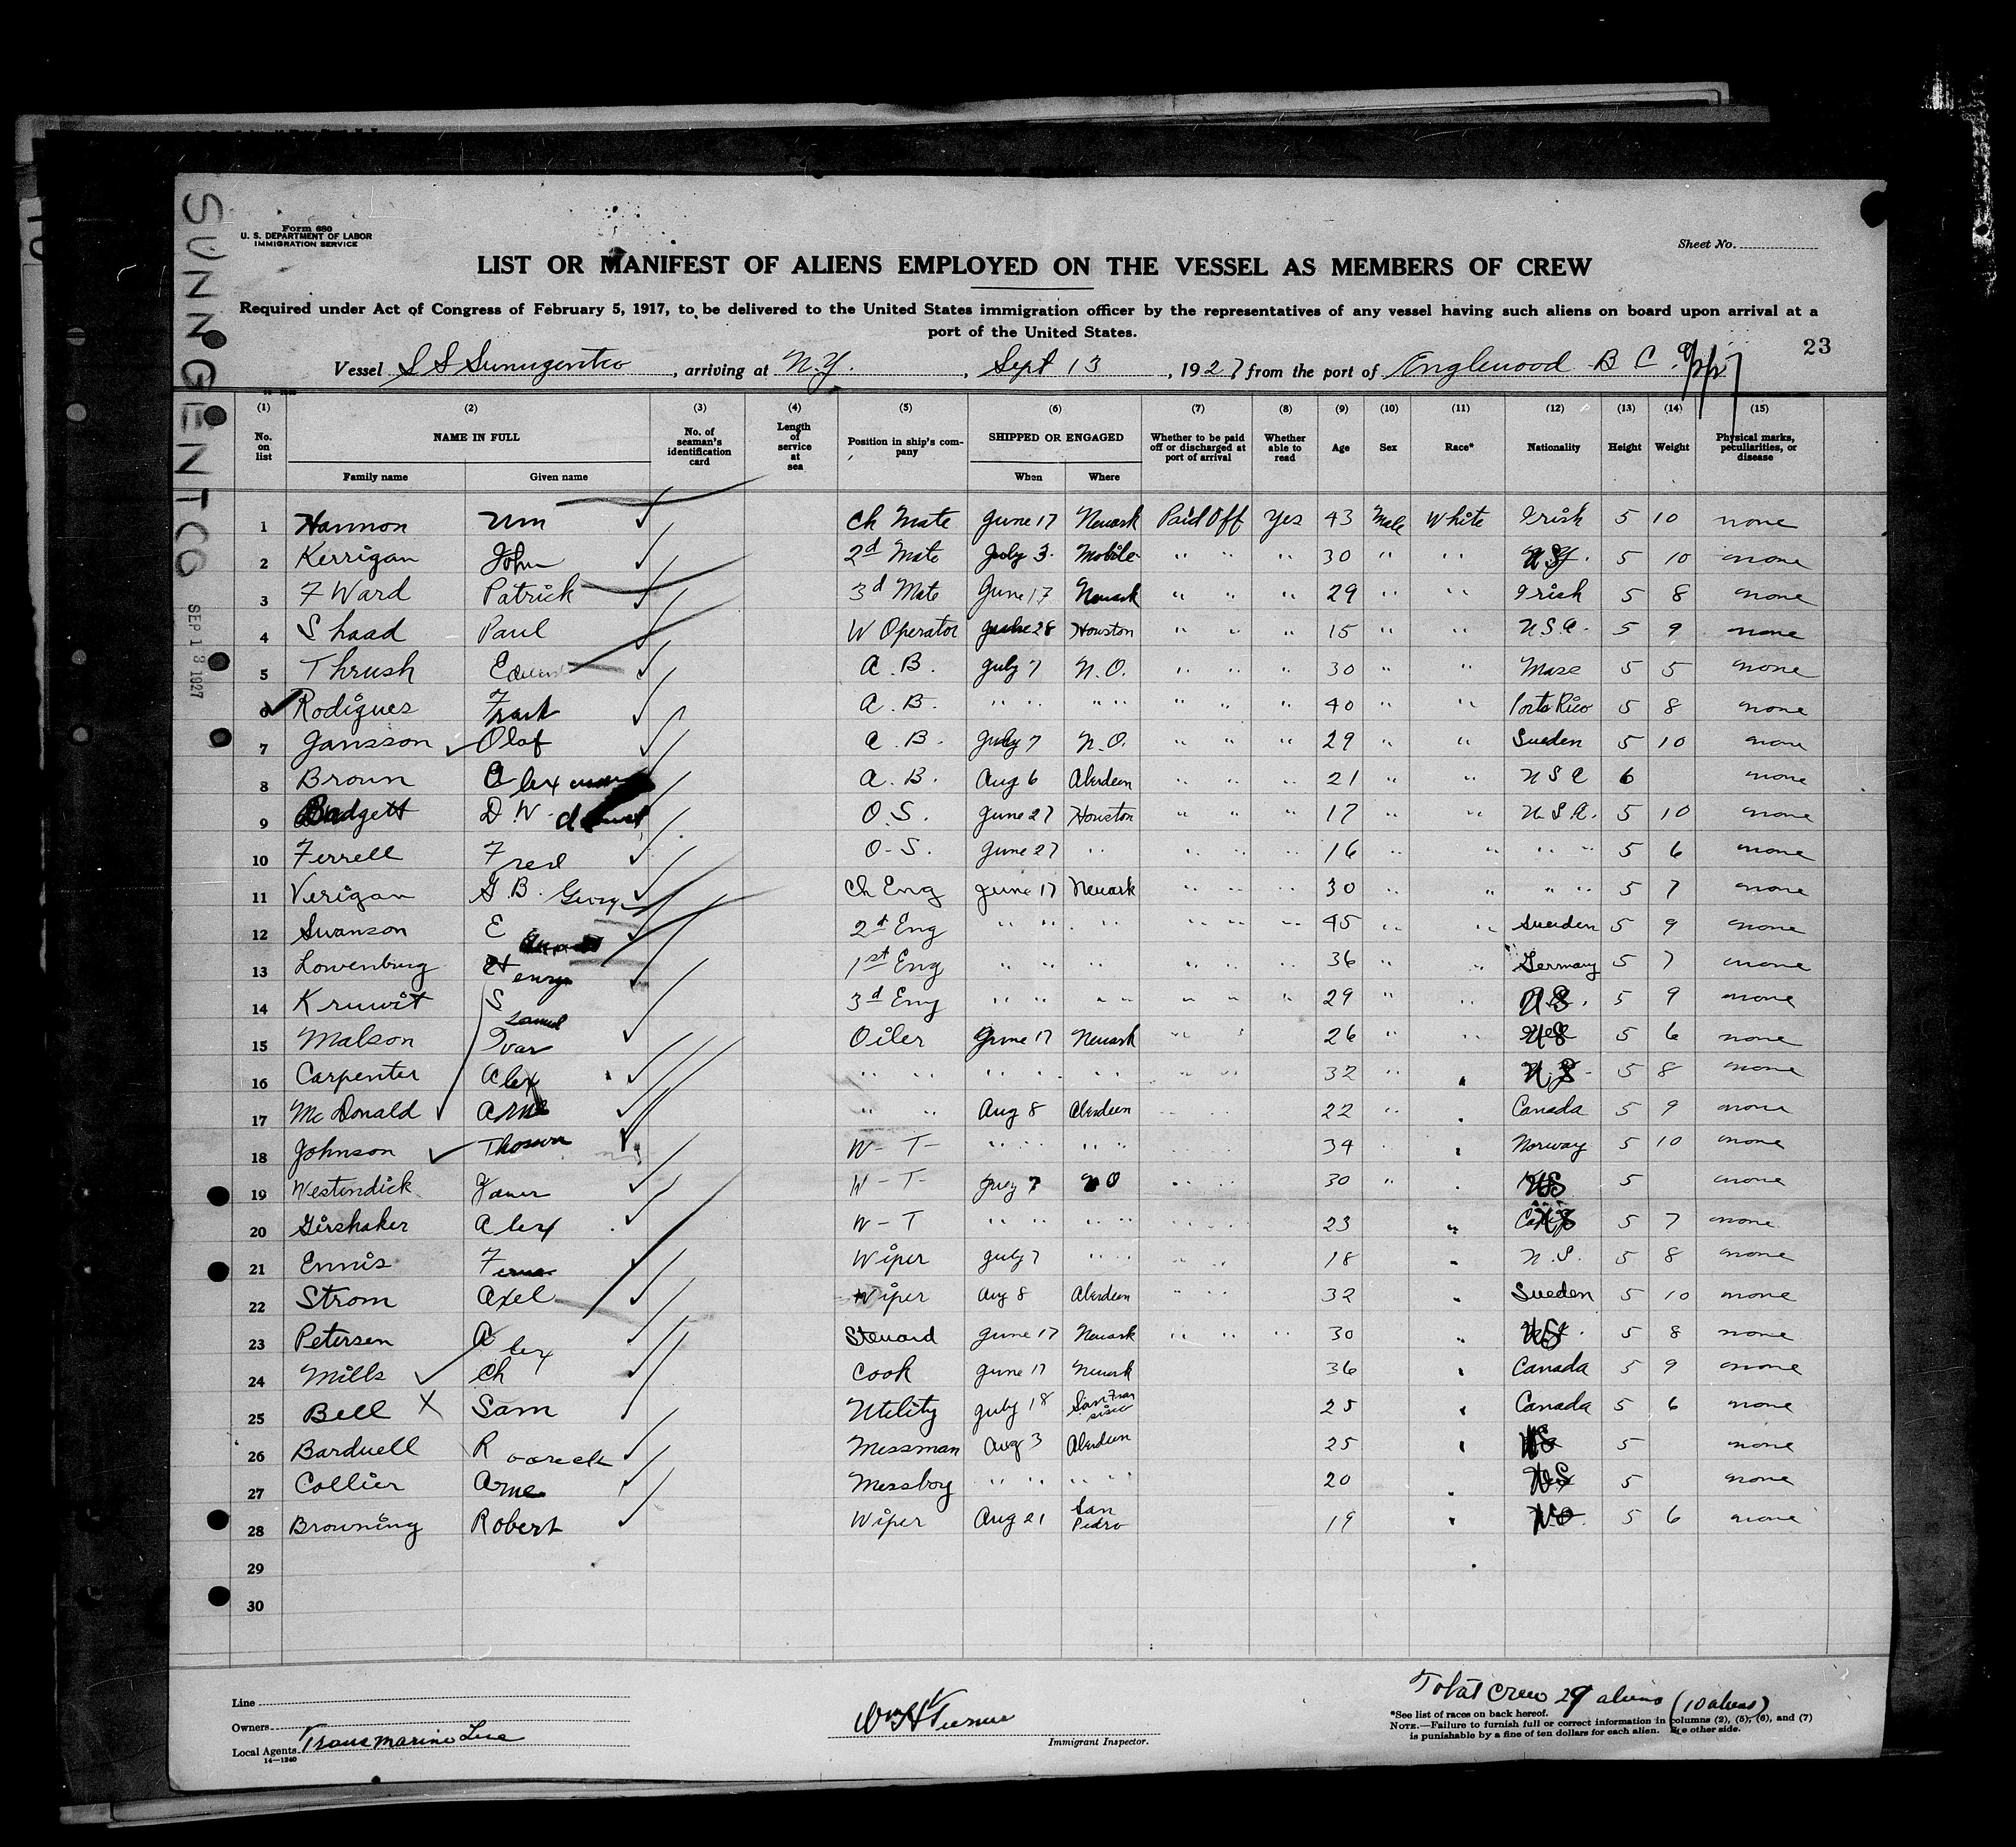 SUNNGENTCO SEP 13 1927
Form 680
U. S. DEPARTMENT OF LABOR
IMMIGRATION SERVICE
Sheet No.
LIST OR MANIFEST OF ALIENS EMPLOYED ON THE VESSEL AS MEMBERS OF CREW
Required under Act of Congress of February 5, 1917, to be delivered to the United States immigration officer by the representatives of any vessel having such aliens on board upon arrival at a
port of the United States.
23
Vessel S S Sunugentco, arriving at N.Y., Sept 13, 1927 from the port of Englewood B C.
(1) (2) (3) (4) (5) (6) (7) (8) (9) (10) (11) (12) (13) (14) (15)
No. on list NAME IN FULL Family name Given name No. of seaman's identification card Length of service at sea Position in ship's company SHIPPED OR ENGAGED When Where Whether to be paid off or discharged at port of arrival Whether able to read Age Sex Race* Nationality Height Weight Physical marks, peculiarities, or disease
1 Hannon Wm Ch Mate June 17 Newark Paid Off Yes 43 Male White Irish 5 10 none
2 Kerrigan John 2d Mate July 3 Mobile " " " 30 " " 5 10 none
3 F Ward Patrick 3d Mate June 17 Newark " " " 29 " " Irish 5 8 none
4 Shaad Paul W Operator June 28 Houston " " " 15 " " U.S.A. 5 9 none
5 Thrush A. B. July 7 N.O. " " " 30 " " 5 5 none
6 Rodigues Frank A. B. " " " " " " " 40 " " Porto Rico 5 8 none
7 Jansson Olaf A. B. July 7 N.O. " " " 29 " " Sweden 5 10 none
8 Brown Alex A. B. Aug 6 Aberdeen " " " 21 " " U S A 6 none
9 Badgett D. W. O.S. June 27 Houston " " " 17 " " U.S.A. 5 10 none
10 Ferrell Fred O-S. June 27 " " " " 16 " " " " " 5 6 none
11 Verigan G. B. Ch Eng June 17 Newark " " " 30 " " " " " 5 7 none
12 Swanson E 2d Eng " " " " " " 45 " " Sweden 5 9 none
13 Lowenburg Henry 1st Eng " " " " " " 36 " " Germany 5 7 none
14 Kruwit S 3d Eng " " " " " " " 29 " " U.S. 5 9 none
15 Malson Ivar Oiler June 17 Newark " " 26 " " US 5 6 none
16 Carpenter Alex " " " " " " " 32 " " U.S. 5 8 none
17 McDonald Arne " " Aug 8 Aberdeen 22 " " Canada 5 9 none
18 Johnson W-T- " " " " 34 " Norway 5 10 none
19 Westendick W-T- July 7 N O " " 30 " " US 5 none
20 Girshaker Alex W-T " " " " 23 " US 5 7 none
21 Ennis Wiper July 7 " " 18 " U.S. 5 8 none
22 Strom Axel Wiper Aug 8 Aberdeen " " 32 " Sweden 5 10 none
23 Petersen Alex Steward June 17 Newark " " " 30 " US. 5 8 none
24 Mills Ch Cook June 17 Newark 36 " Canada 5 9 none
25 Bell X Sam Utility July 18 San Fran sisco 25 " Canada 5 6 none
26 Barduell R Messman Aug 3 Aberdeen 25 " US 5 none
27 Collier Arne Messboy " " " " 20 " US 5 none
28 Browning Robert Wiper Aug 21 San Pedro 19 " 5 6 none
29
30
Line
Owners
Local Agents Transmarine Line
14—1240
Immigrant Inspector.
Total Crew 29 aliens (10 aliens)
*See list of races on back hereof.
NOTE.—Failure to furnish full or correct information in columns (2), (5), (6), and (7)
is punishable by a fine of ten dollars for each alien. See other side.